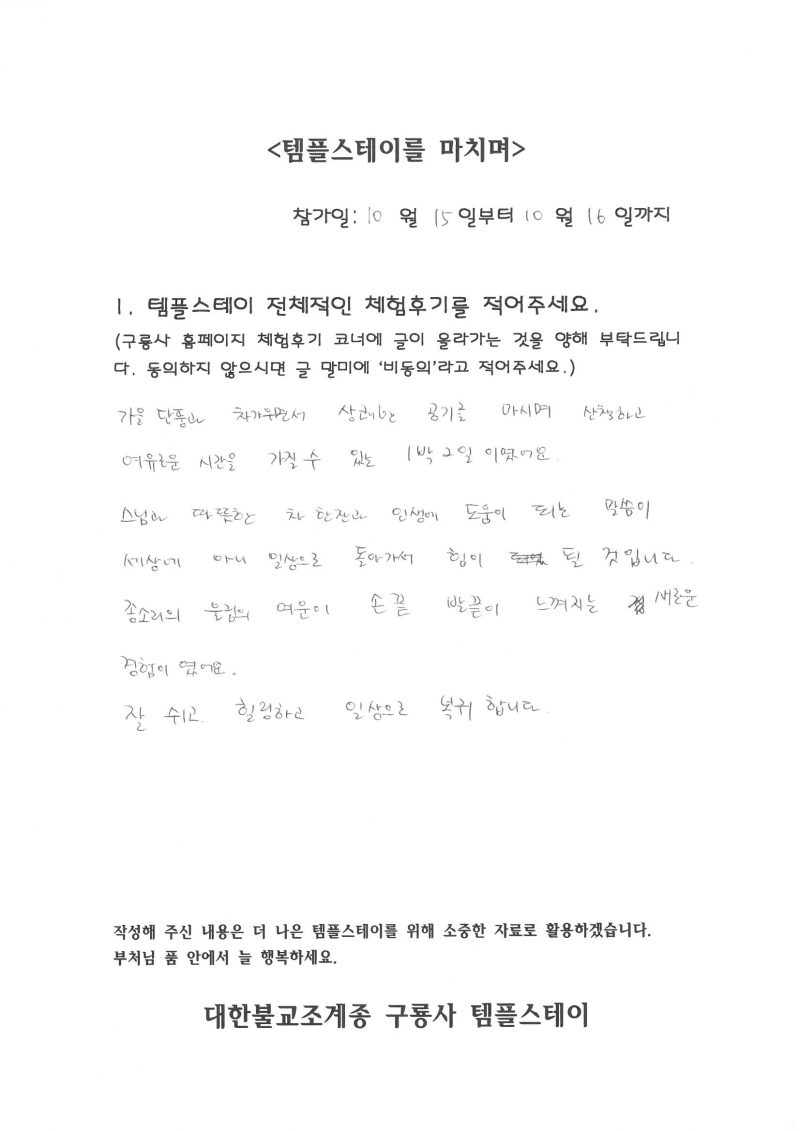 <템플스테이를 마치며>
참가일: 10 월 15 일부터 10 월 16 일까지
1. 템플스테이 전체적인 체험후기를 적어주세요.
(구룡사 홈페이지 체험후기 코너에 글이 올라가는 것을 양해 부탁드립니
다. 동의하지 않으시면 글 말미에 '비동의'라고 적어주세요.)
가을 단풍과 차가우면서 상쾌한 공기를 마시며 산책하고
여유로운 시간을 가질 수 있는 1박 2일 이였어요.
스님과 따뜻한 차 한잔과 인생에 도움이 되는 말씀이
세상에 아니 일상으로 돌아가서 힘이 될 것입니다.
종소리의 울림의 여운이 손끝 발끝이 느껴지는 새로운
경험이 였어요.
잘 쉬고 힐링하고 일상으로 복귀 합니다.
작성해 주신 내용은 더 나은 템플스테이를 위해 소중한 자료로 활용하겠습니다.
부처님 품 안에서 늘 행복하세요.
대한불교조계종 구룡사 템플스테이